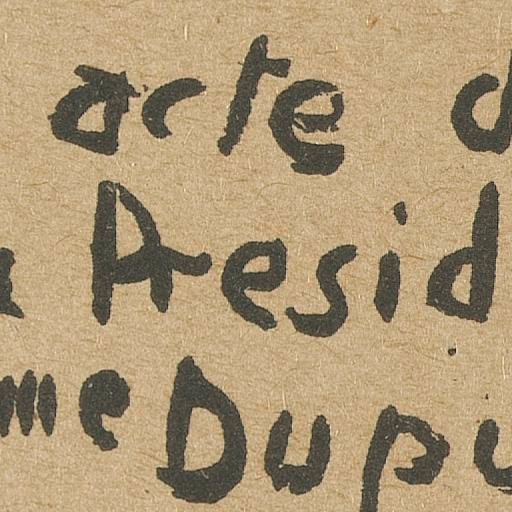 acte d
a Presid
me Dupu